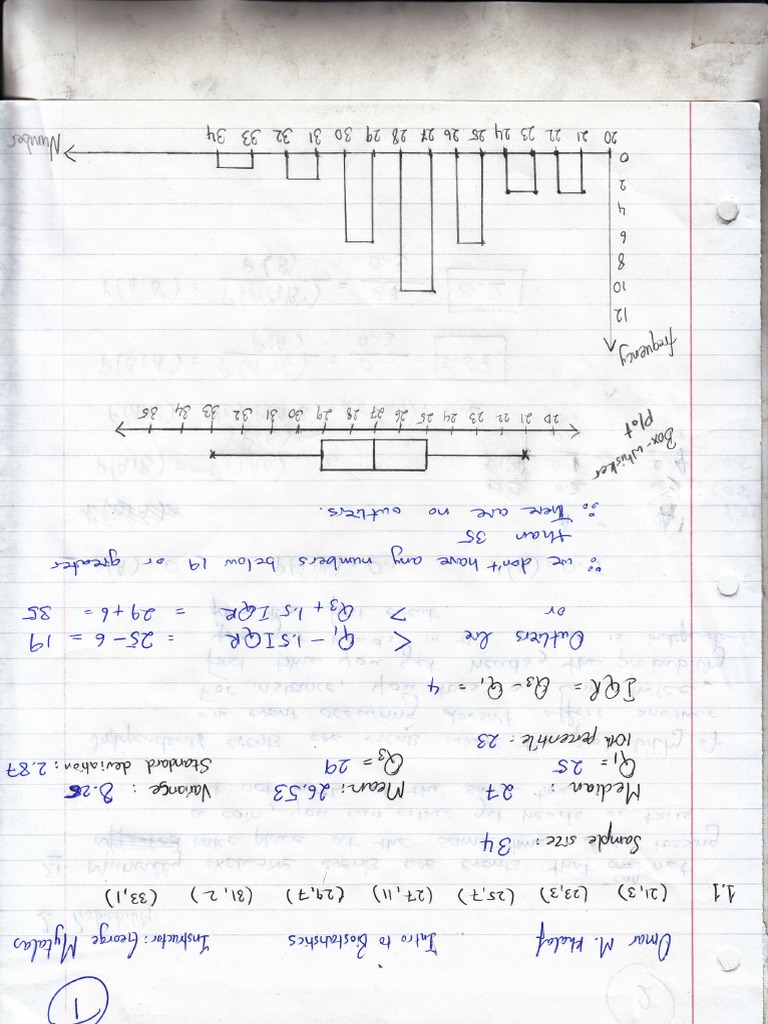 1
Omar M. Khalaf Intro to Biostatistics Instructor: George Mytalas
1.1 (21,3) (23,3) (25,7) (27,11) (29,7) (31,2) (33,1)
Sample size: 34
Median: 27 Mean: 26.53 Variance: 8.25
Q₁= 25 Q₃= 29 Standard deviation: 2.87
10th percentile: 23
IQR = Q₃-Q₁ = 4
Outliers are < Q₁-1.5IQR = 25-6 = 19
or > Q₃+1.5IQR = 29+6 = 35
∵ we don't have any numbers below 19 or greater
than 35
∴ There are no outliers.
Box-whisker
Plot
20 21 22 23 24 25 26 27 28 29 30 31 32 33 34 35
frequency
12
10
8
6
4
2
0
20 21 22 23 24 25 26 27 28 29 30 31 32 33 34 Number